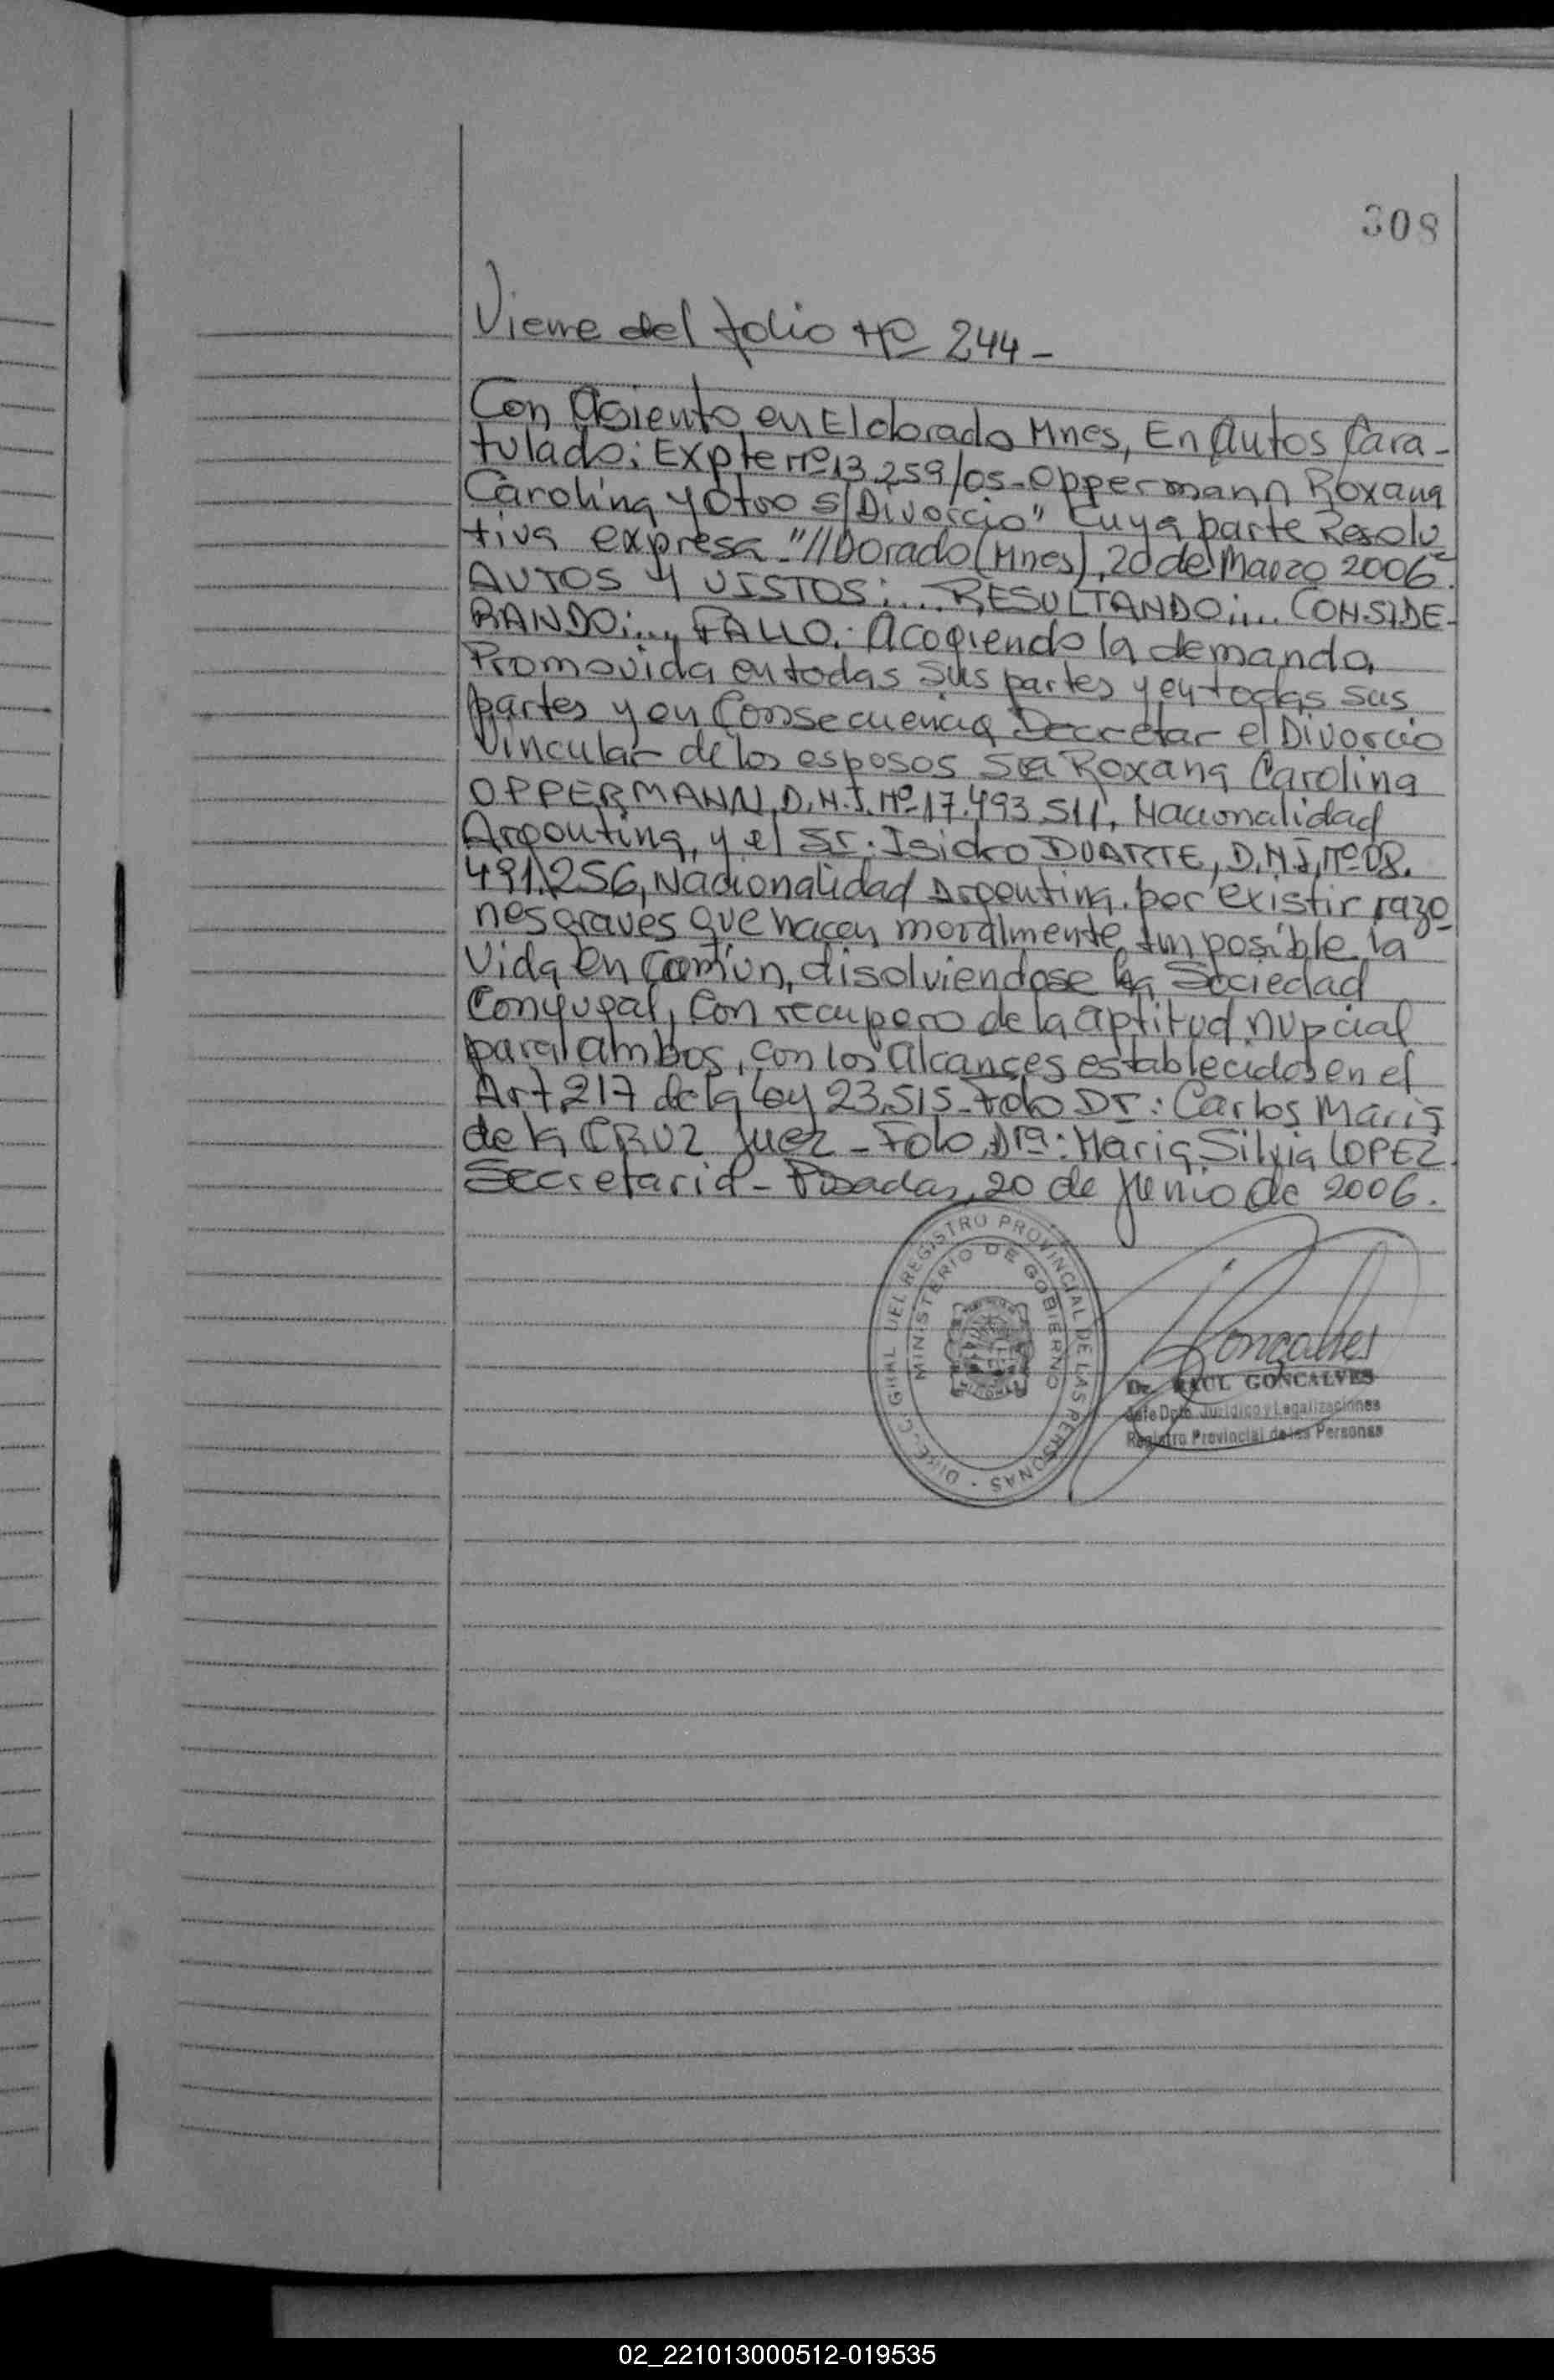 308
Viene del folio Nº 244-
Con Asiento en Eldorado Mnes, En Autos Cara-
tulado: Expte Nº 13.259/05-Oppermann Roxana
Carolina y Otro S/Divorcio" Cuya parte Resolu
tiva expresa "//Dorado (Mnes), 20 de Marzo 2006.
AUTOS Y VISTOS:... RESULTANDO:... CONSIDE-
RANDO:... FALLO: Acogiendo la demanda,
Promovida en todas Sus partes y en todas sus
partes y en Consecuencia Decretar el Divorcio
Vincular de los esposos Sra Roxana Carolina
OPPERMANN, D.N.I. Nº 17.493.511, Nacionalidad
Argentina, y el Sr. Isidro DUARTE, D.N.I, Nº 08.
491.256, Nacionalidad Argentina. por existir razo
nes graves que hacen moralmente Imposible la
Vida en Común, disolviendose la Sociedad
Conyugal, Con recupero de la aptitud nupcial
para ambos, con los alcances establecidos en el
Art. 217 de la Ley 23.515- Fdo Dr: Carlos Maria
de la CRUZ Juez - Fdo, Dra: Maria Silvia LOPEZ.
Secretaria - Posadas, 20 de Junio de 2006.
DIREC. GRAL DEL REGISTRO PROVINCIAL DE LAS PERSONAS
MINISTERIO DE GOBIERNO
MISIONES
Goncalves
Dr. RAUL GONCALVES
Jefe Dpto. Jurídico y Legalizaciones
Registro Provincial de las Personas
02_221013000512-019535